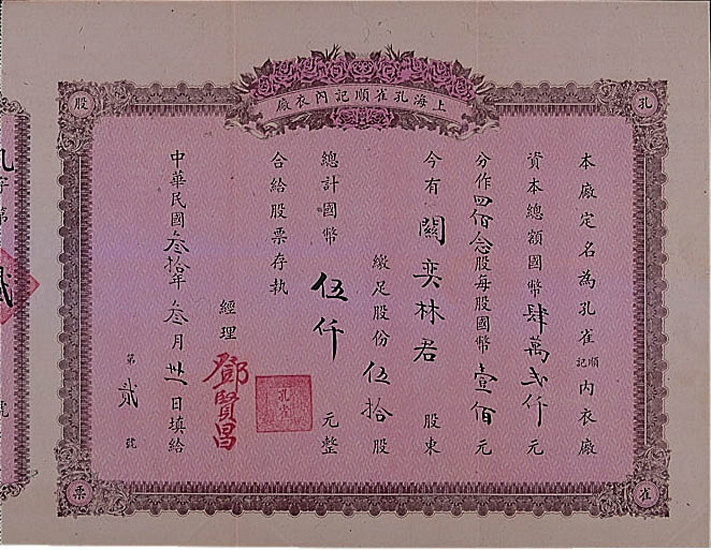 上海孔雀順記內衣廠
孔
雀
股
票
本廠定名為孔雀順記內衣廠
資本總額國幣肆萬弍仟元
分作四佰念股每股國幣壹佰元
今有闕奕林君股東
繳足股份伍拾股
總計國幣伍仟元整
合給股票存執
經理鄧賢昌
孔雀
中華民國叁拾年叁月卅一日填給
第貳號